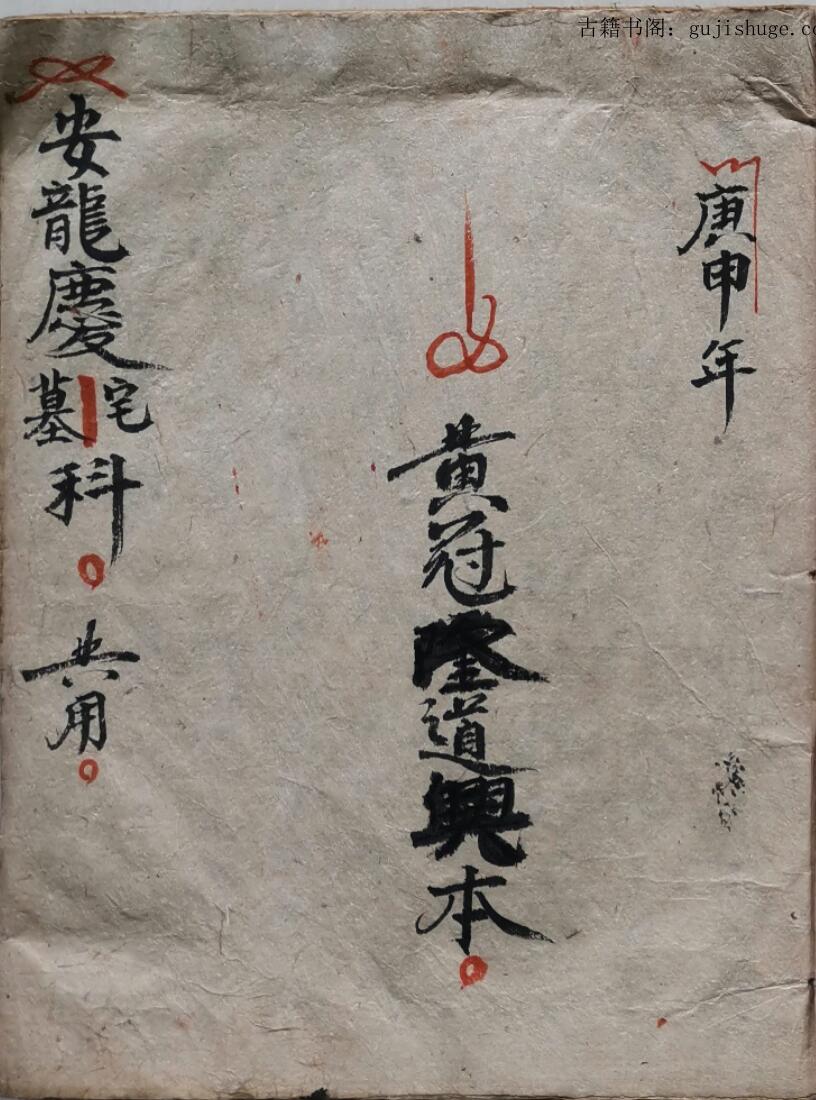 古籍书阁：gujishuge.co
庚申年
黄冠隆道興本
安龍慶宅墓科 共用